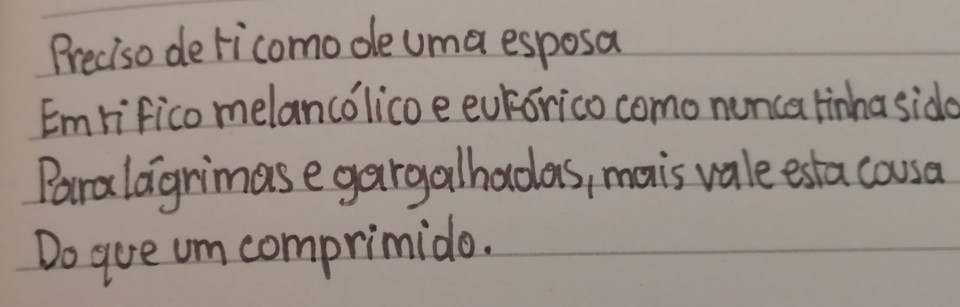 Preciso de ti como de uma esposa
Em ti fico melancólico e eufórico como nunca tinha sido
Para lágrimas e gargalhadas, mais vale esta causa
Do que um comprimido.